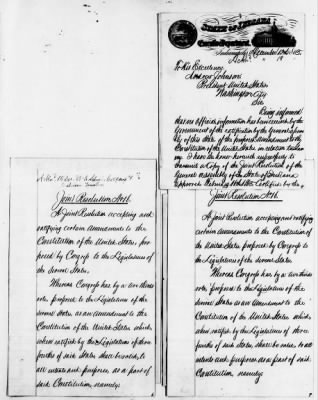 STATE OF INDIANA
To His Excellency
Andrew Johnson
President United States
Washington City
Sir
Being informed
that no official information has been received by the
Government of the ratification by the General Assem-
bly of this State of the proposed amendment to the
Constitution of the United States, in relation
I have the honor herewith respectfully to
transmit a Copy of the Joint Resolution of the
General Assembly of the State of Indiana
approved certified by the
Joint Resolution No 16.
A Joint Resolution accepting and
ratifying certain amendments to the
Constitution of the United States, pro-
posed by Congress to the Legislatures of
the several States.
Whereas Congress has by a two thirds
vote, proposed to the Legislatures of the
several States, as an Amendment to the
Constitution of the United States, which,
when ratified by the Legislatures of three
fourths of said States shall be valid, to
all intents and purposes as a part of
said Constitution, namely:
Joint Resolution No 16.
A Joint Resolution accepting and ratifying
certain amendments to the Constitution of
the United States proposed by Congress to
the Legislatures of the several States.
Whereas Congress has by a two thirds
vote, proposed to the Legislatures of the
several States as an Amendment to the
Constitution of the United States which,
when ratified by the Legislatures of three
fourths of said States, shall be valid to all
intents and purposes as a part of said
Constitution, namely: